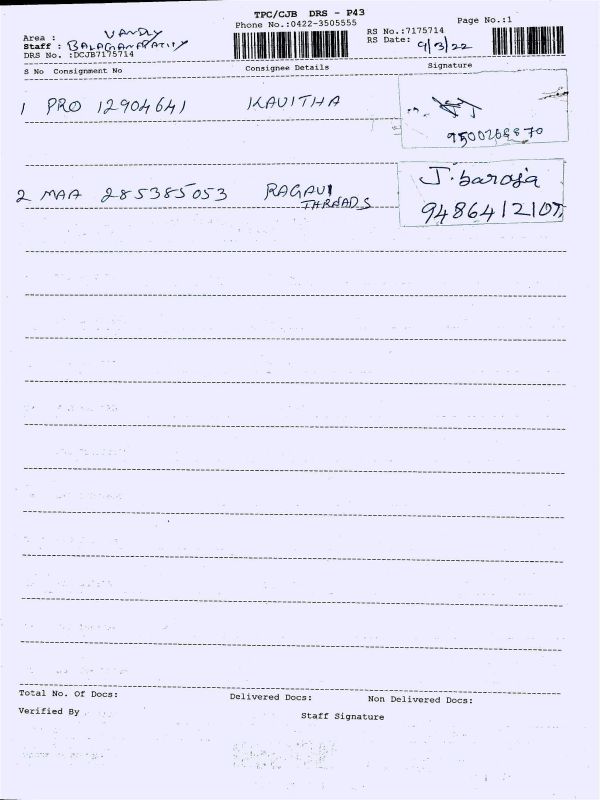 TPC/CJB DRS - P43
Phone No.:0422-3505555
Page No.:1
Area : VANDLY
Staff :
DRS No. :DCJB7175714
RS No.:7175714
RS Date: 9/3/22
S No Consignment No Consignee Details Signature
1 PRO 12904641 KAVITHA
2 MAA 285385053 RAGAVI
THREADS
J. Saroja
Total No. Of Docs: Delivered Docs: Non Delivered Docs:
Verified By
Staff Signature